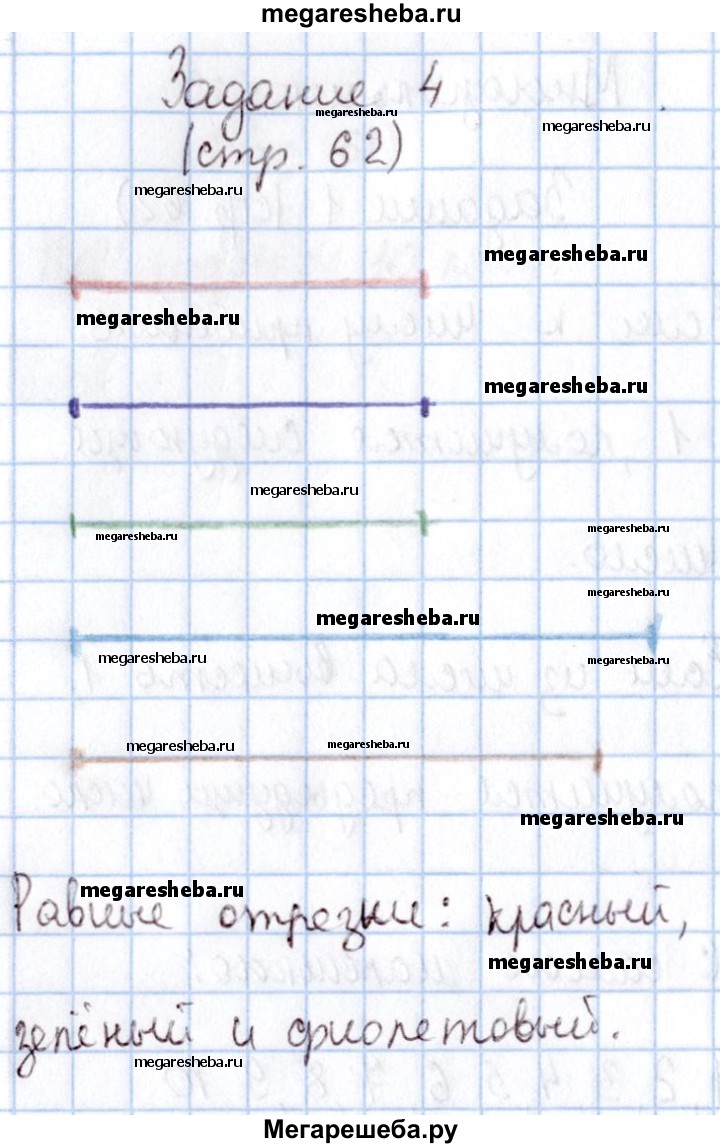 megaresheba.ru
Задание 4
megaresheba.ru
megaresheba.ru
(стр. 62)
megaresheba.ru
megaresheba.ru
megaresheba.ru
megaresheba.ru
megaresheba.ru
megaresheba.ru
megaresheba.ru
megaresheba.ru
megaresheba.ru
megaresheba.ru
megaresheba.ru
megaresheba.ru
megaresheba.ru
megaresheba.ru
megaresheba.ru
Равные отрезки: красный,
megaresheba.ru
зелёный и фиолетовый.
megaresheba.ru
Мегарешеба.ру